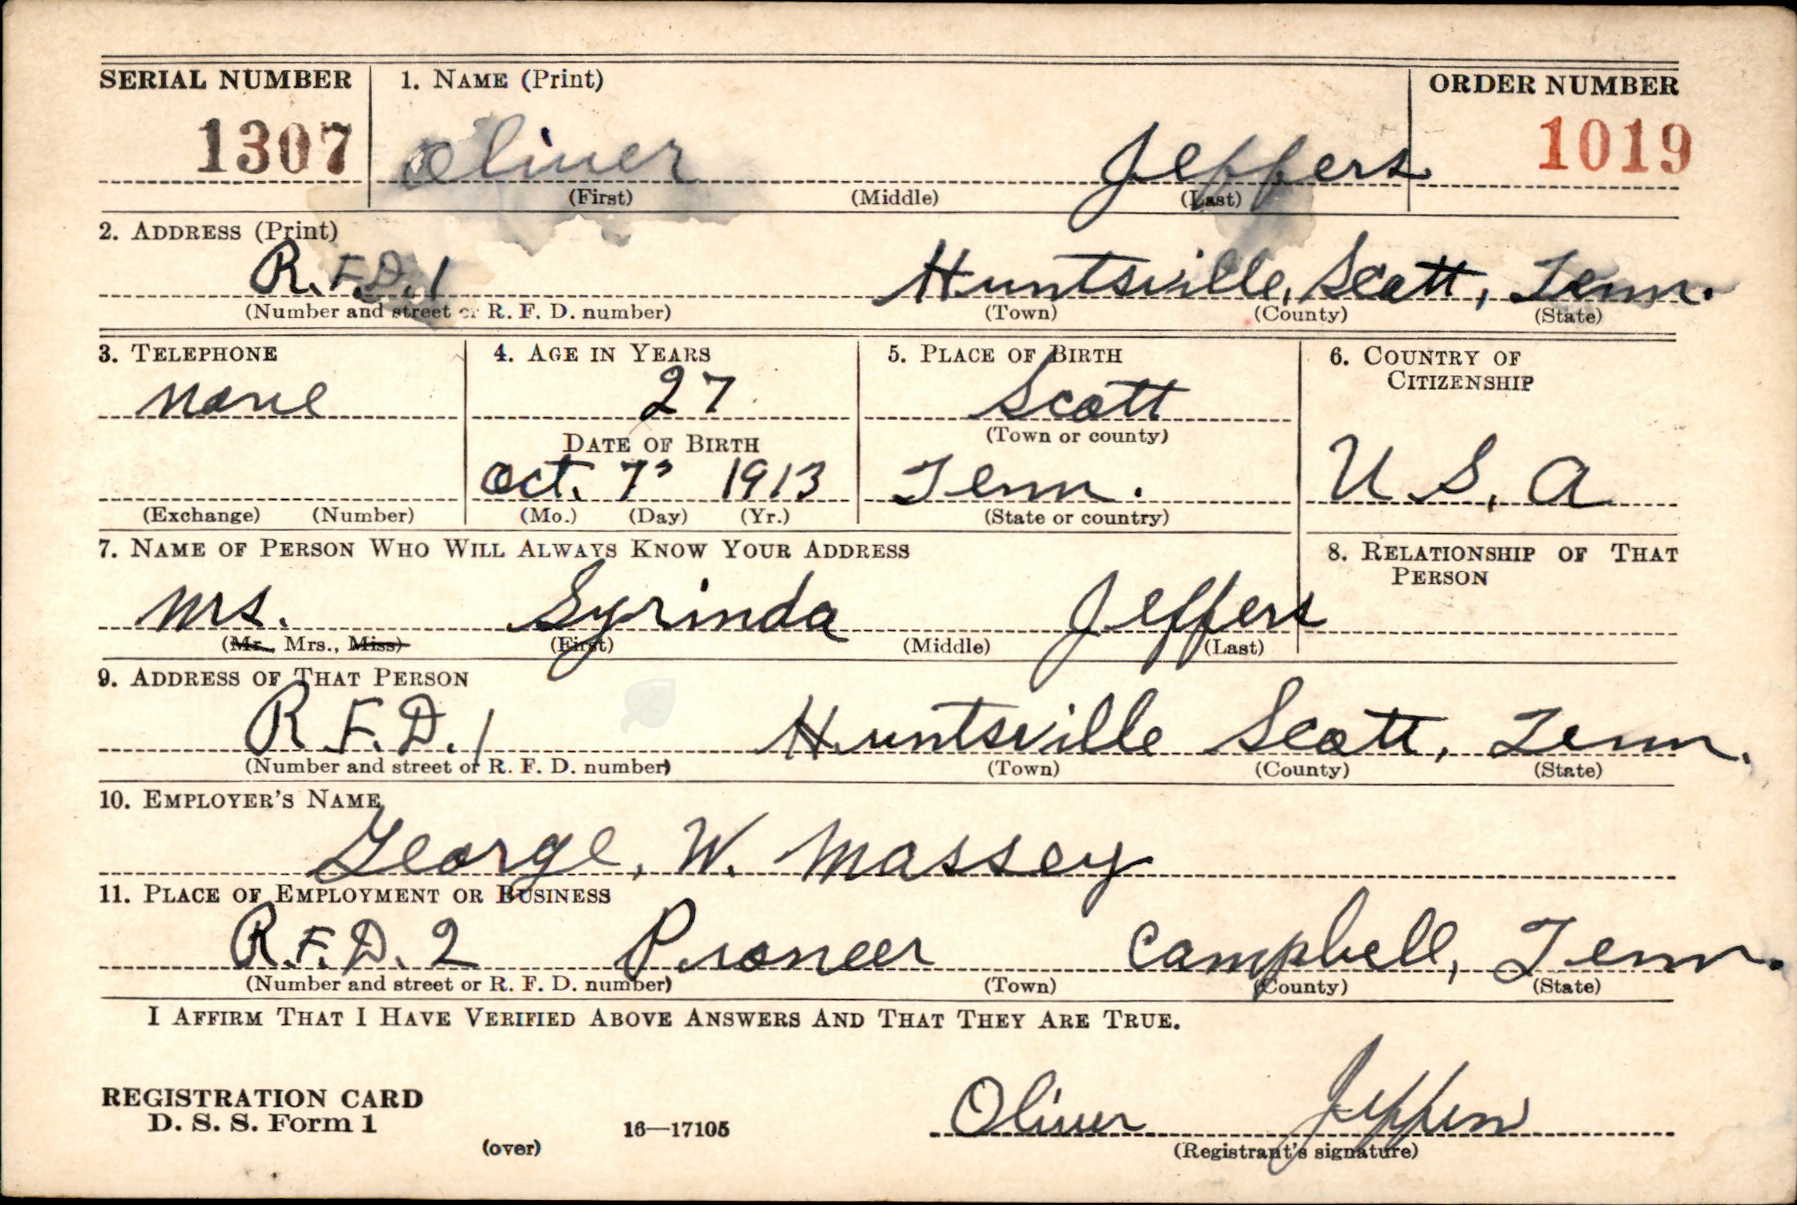 SERIAL NUMBER 1. NAME (Print) ORDER NUMBER
1307 Oliver Jeffers 1019
(First) (Middle) (Last)
2. ADDRESS (Print)
R.F.D. 1 Huntsville, Scott, Tenn.
(Number and street or R. F. D. number) (Town) (County) (State)
3. TELEPHONE 4. AGE IN YEARS 5. PLACE OF BIRTH 6. COUNTRY OF CITIZENSHIP
None 27 Scott
DATE OF BIRTH (Town or county)
Oct. 7 1913 Tenn. U. S. A
(Exchange) (Number) (Mo.) (Day) (Yr.) (State or country)
7. NAME OF PERSON WHO WILL ALWAYS KNOW YOUR ADDRESS 8. RELATIONSHIP OF THAT PERSON
Mrs. Syrinda Jeffers
(Mr. Mrs., Miss) (First) (Middle) (Last)
9. ADDRESS OF THAT PERSON
R.F.D. 1 Huntsville Scott, Tenn.
(Number and street or R. F. D. number) (Town) (County) (State)
10. EMPLOYER'S NAME
George, W. Massey
11. PLACE OF EMPLOYMENT OR BUSINESS
R.F.D. 2 Pioneer Campbell, Tenn.
(Number and street or R. F. D. number) (Town) (County) (State)
I AFFIRM THAT I HAVE VERIFIED ABOVE ANSWERS AND THAT THEY ARE TRUE.
REGISTRATION CARD
D. S. S. Form 1 Oliver Jeffers
(over) 16—17105 (Registrant's signature)